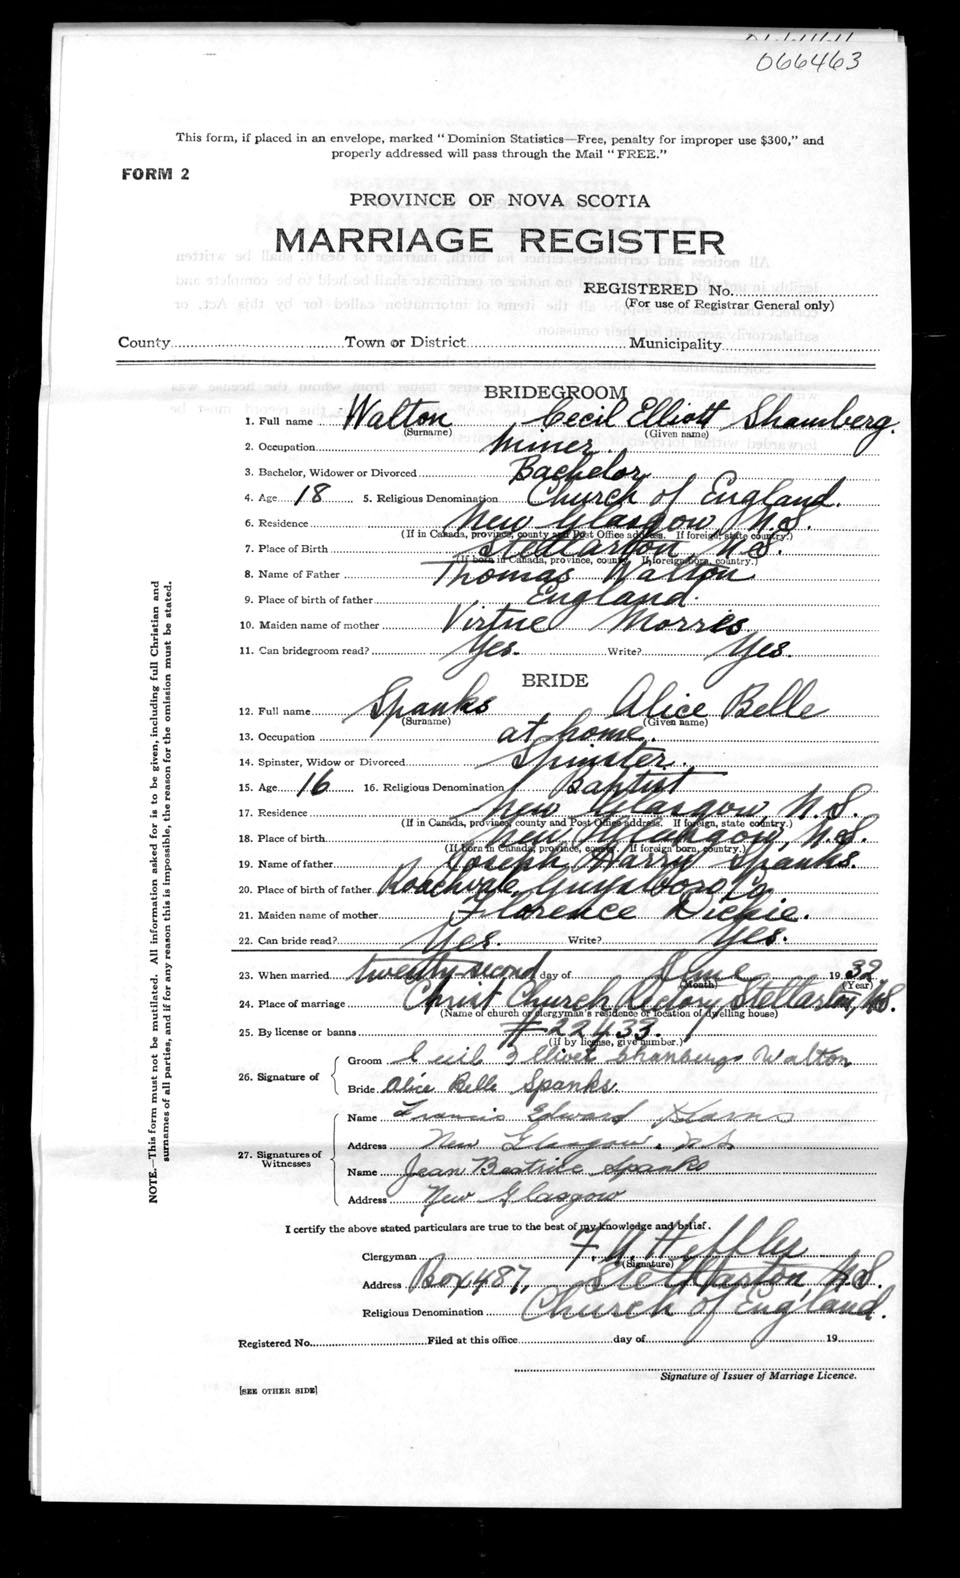 066463
This form, if placed in an envelope, marked "Dominion Statistics—Free, penalty for improper use $300," and
properly addressed will pass through the Mail "FREE."
FORM 2
PROVINCE OF NOVA SCOTIA
MARRIAGE REGISTER
REGISTERED No.
(For use of Registrar General only)
County Town or District Municipality
BRIDEGROOM
1. Full name Walton Cecil Elliott Shamberg.
(Surname) (Given name)
2. Occupation Miner.
3. Bachelor, Widower or Divorced Bachelor
4. Age 18 5. Religious Denomination Church of England.
6. Residence New Glasgow, N.S.
(If in Canada, province, county and Post Office address. If foreign, state country.)
7. Place of Birth Stellarton N.S.
(If born in Canada, province, county. If foreign born, country.)
8. Name of Father Thomas Walton
9. Place of birth of father England.
10. Maiden name of mother Virtue Morris
11. Can bridegroom read? Yes. Write? Yes.
BRIDE
12. Full name Spanks Alice Belle
(Surname) (Given name)
13. Occupation at home.
14. Spinster, Widow or Divorced Spinster.
15. Age 16 16. Religious Denomination Baptist
17. Residence New Glasgow, N.S.
(If in Canada, province, county and Post Office address. If foreign, state country.)
18. Place of birth New Glasgow, N.S.
(If born in Canada, province, county. If foreign born, country.)
19. Name of father Joseph Harry Spanks.
20. Place of birth of father Guysboro
21. Maiden name of mother Florence Dickie.
22. Can bride read? Yes. Write? Yes.
23. When married twenty-second day of June 1932
(Month) (Year)
24. Place of marriage Christ Church Rectory Stellarton, N.S.
(Name of church or clergyman's residence or location of dwelling house)
25. By license or banns # 22433.
(If by license, give number.)
26. Signature of
Groom Cecil Elliott Shamberg Walton
Bride Alice Belle Spanks.
27. Signatures of Witnesses
Name Francis Edward
Address New Glasgow. N.S
Name Jean Beatrice Spanks
Address New Glasgow
I certify the above stated particulars are true to the best of my knowledge and belief.
Clergyman F. A.
(Signature)
Address Box 487, Stellarton, N.S.
Religious Denomination Church of England.
Registered No. Filed at this office day of 19
Signature of Issuer of Marriage Licence.
[SEE OTHER SIDE]
NOTE.—This form must not be mutilated. All information asked for is to be given, including full Christian and
surnames of all parties, and if for any reason this is impossible, the reason for the omission must be stated.